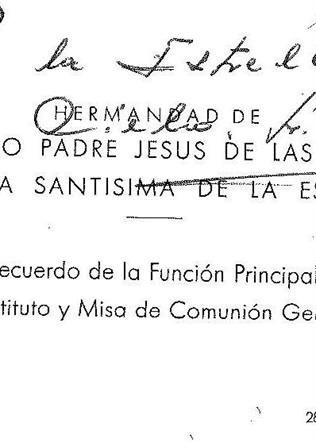 la Estrel
HERMANDAD DE
O PADRE JESUS DE LAS
A SANTISIMA DE LA ES
ecuerdo de la Función Principal
tituto y Misa de Comunión Ge
28